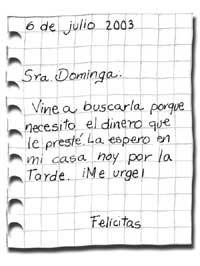 6 de julio 2003
Sra. Dominga:
Vine a buscarla porque
necesito el dinero que
le presté. La espero en
mi casa hoy por la
Tarde. ¡Me urge!
Felicitas